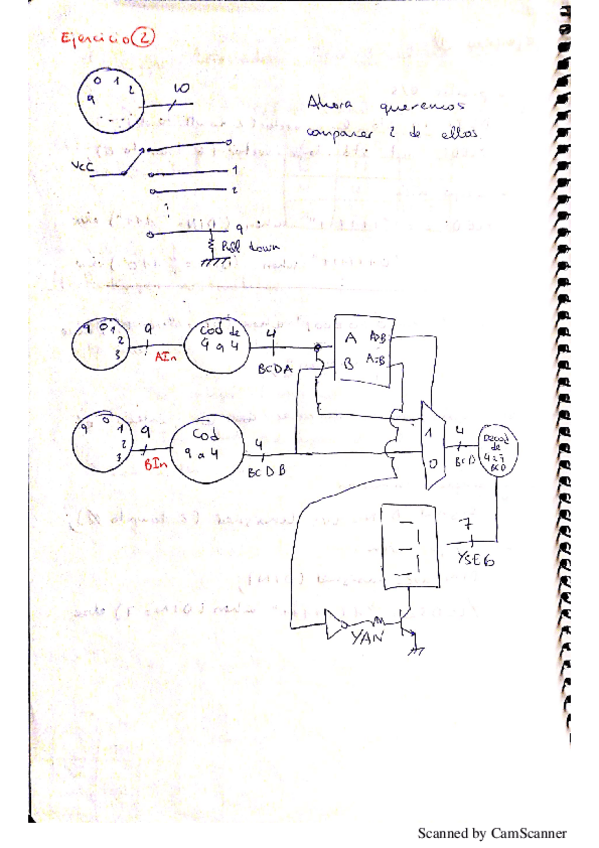 Ejercicio 2
0 1 2 9
10
Ahora queremos
comparar 2 de ellos
VCC
0
1
2
9
Pull down
9 0 1 2 3
9
AIn
Cod de
9 a 4
4
BCDA
A
B
A>B
A=B
9 0 1 2 3
9
BIn
Cod
9 a 4
4
BCDB
1
0
4
BCD
Decod
de
4 a 7
BCD
7
YSEG
YAN
Scanned by CamScanner